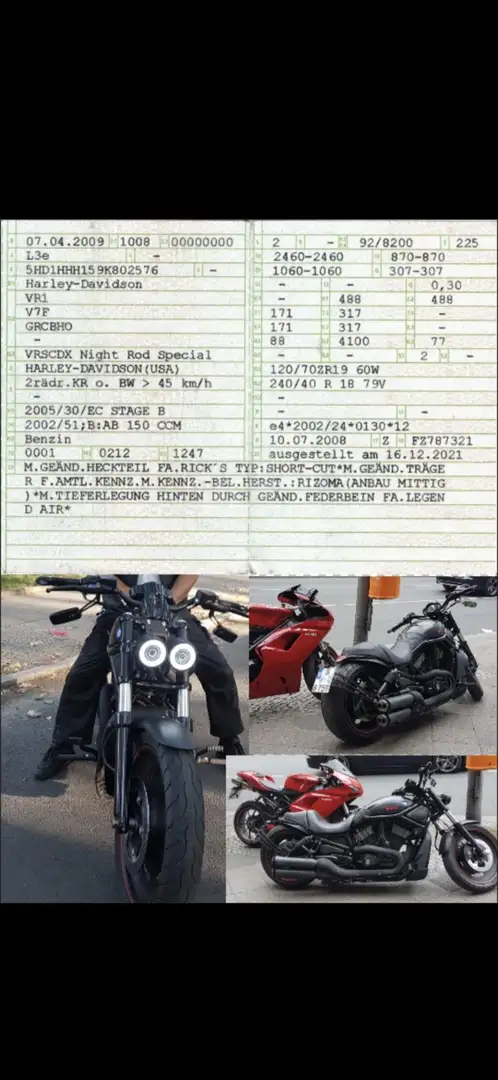 07.04.2009 1008 00000000
L3e -
5HD1HHH159K802576 -
Harley-Davidson
VR1
V7F
GRCBHO
-
VRSCDX Night Rod Special
HARLEY-DAVIDSON(USA)
2rädr.KR o. BW > 45 km/h
-
2005/30/EC STAGE B
2002/51;B:AB 150 CCM
Benzin
0001 0212 1247
2 - 92/8200 225
2460-2460 870-870
1060-1060 307-307
- - 0,30
- 488 488
171 317 -
171 317 -
88 4100 77
- - 2 -
120/70ZR19 60W
240/40 R 18 79V
-
- -
e4*2002/24*0130*12
10.07.2008 Z FZ787321
ausgestellt am 16.12.2021
M.GEÄND.HECKTEIL FA.RICK´S TYP:SHORT-CUT*M.GEÄND.TRÄGE
R F.AMTL.KENNZ.M.KENNZ.-BEL.HERST.:RIZOMA(ANBAU MITTIG
)*M.TIEFERLEGUNG HINTEN DURCH GEÄND.FEDERBEIN FA.LEGEN
D AIR*